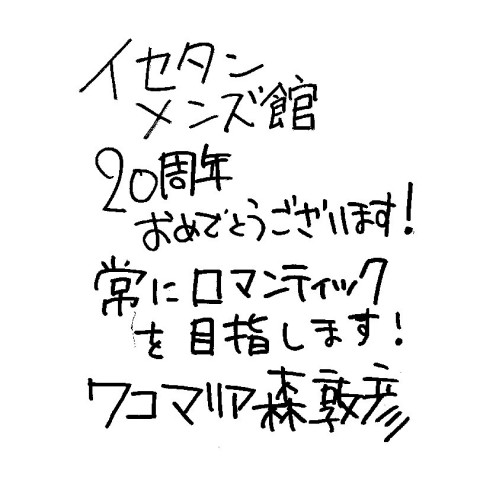 イセタン
メンズ館
20周年
おめでとうございます!
常にロマンティック
を目指します!
ワコマリア森敦彦